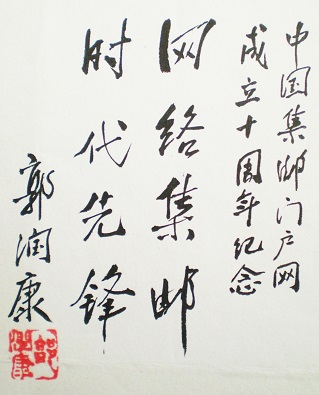 中国集邮门户网
成立十周年纪念
网络集邮
时代先锋
郭润康